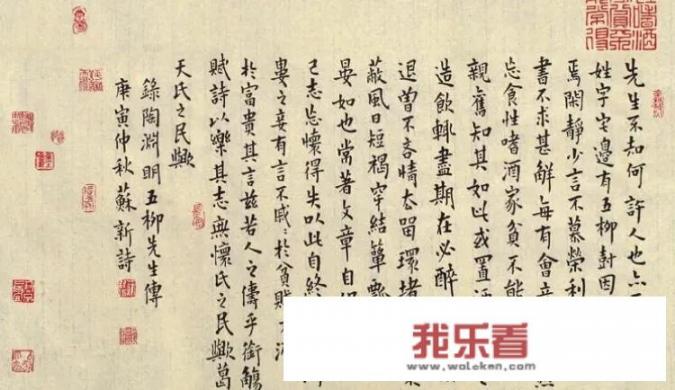 先生不知何許人也亦
姓字宅邊有五柳樹因
焉閑靜少言不慕榮利
書不求甚解每有會意
忘食性嗜酒家貧不能
親舊知其如此或置酒
造飲輒盡期在必醉
退曾不吝情去留環堵
蔽風日短褐穿結簞瓢
晏如也常著文章自
己志忘懷得失以此自終
婁之妻有言不戚〻於貧賤不
於富貴其言茲若人之儔乎銜觴
賦詩以樂其志無懷氏之民歟葛
天氏之民歟
錄陶淵明五柳先生傳
庚寅仲秋蘇新詩
我乐看
www.woleken.com